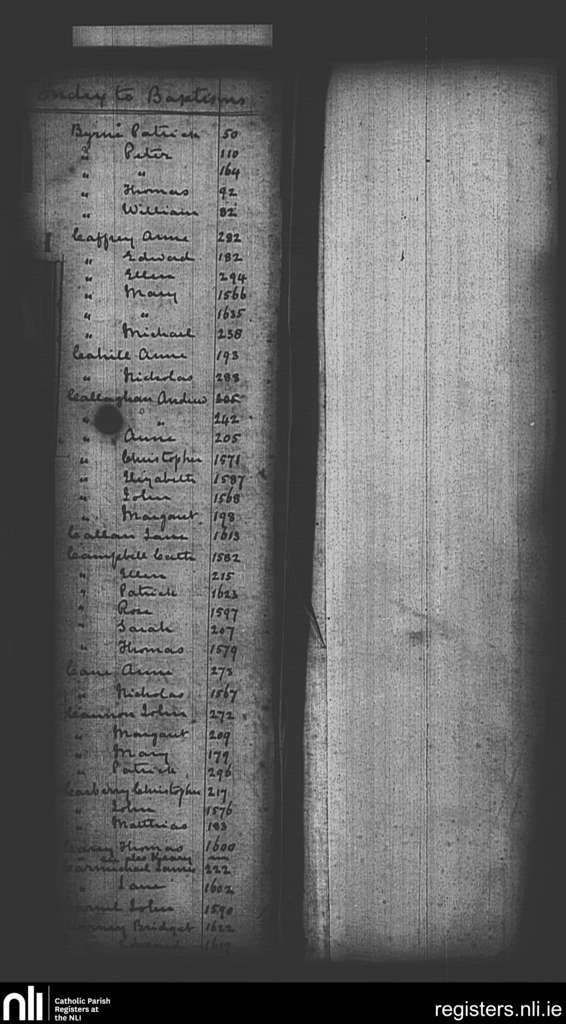 to Baptisms
Byrne Patrick 50
" Peter 110
" " 164
" Thomas 92
" William 82
Caffrey Anne 282
" Edward 182
" Ellen 294
" Mary 1566
" " 1635
" Michael 238
Cahill Anne 193
" Nicholas 288
Callaghan Andrew 205
" " 242
" Anne 205
" Christopher 1571
" Elizabeth 1587
" John 1568
" Margaret 198
Callan Jane 1613
Campbell Cath 1582
" Ellen 215
" Patrick 1623
" Rose 1597
" Sarah 207
" Thomas 1579
Cane Anne 273
" Nicholas 1567
Cannon John 272
" Margaret 209
" Mary 179
" Patrick 296
Carberry Christopher 217
" John 1576
" Matthias 183
Thomas 1600
Carmichael James 222
" Jane 1602
John 1590
Bridget 1622
nli
Catholic Parish
Registers at
the NLI
registers.nli.ie